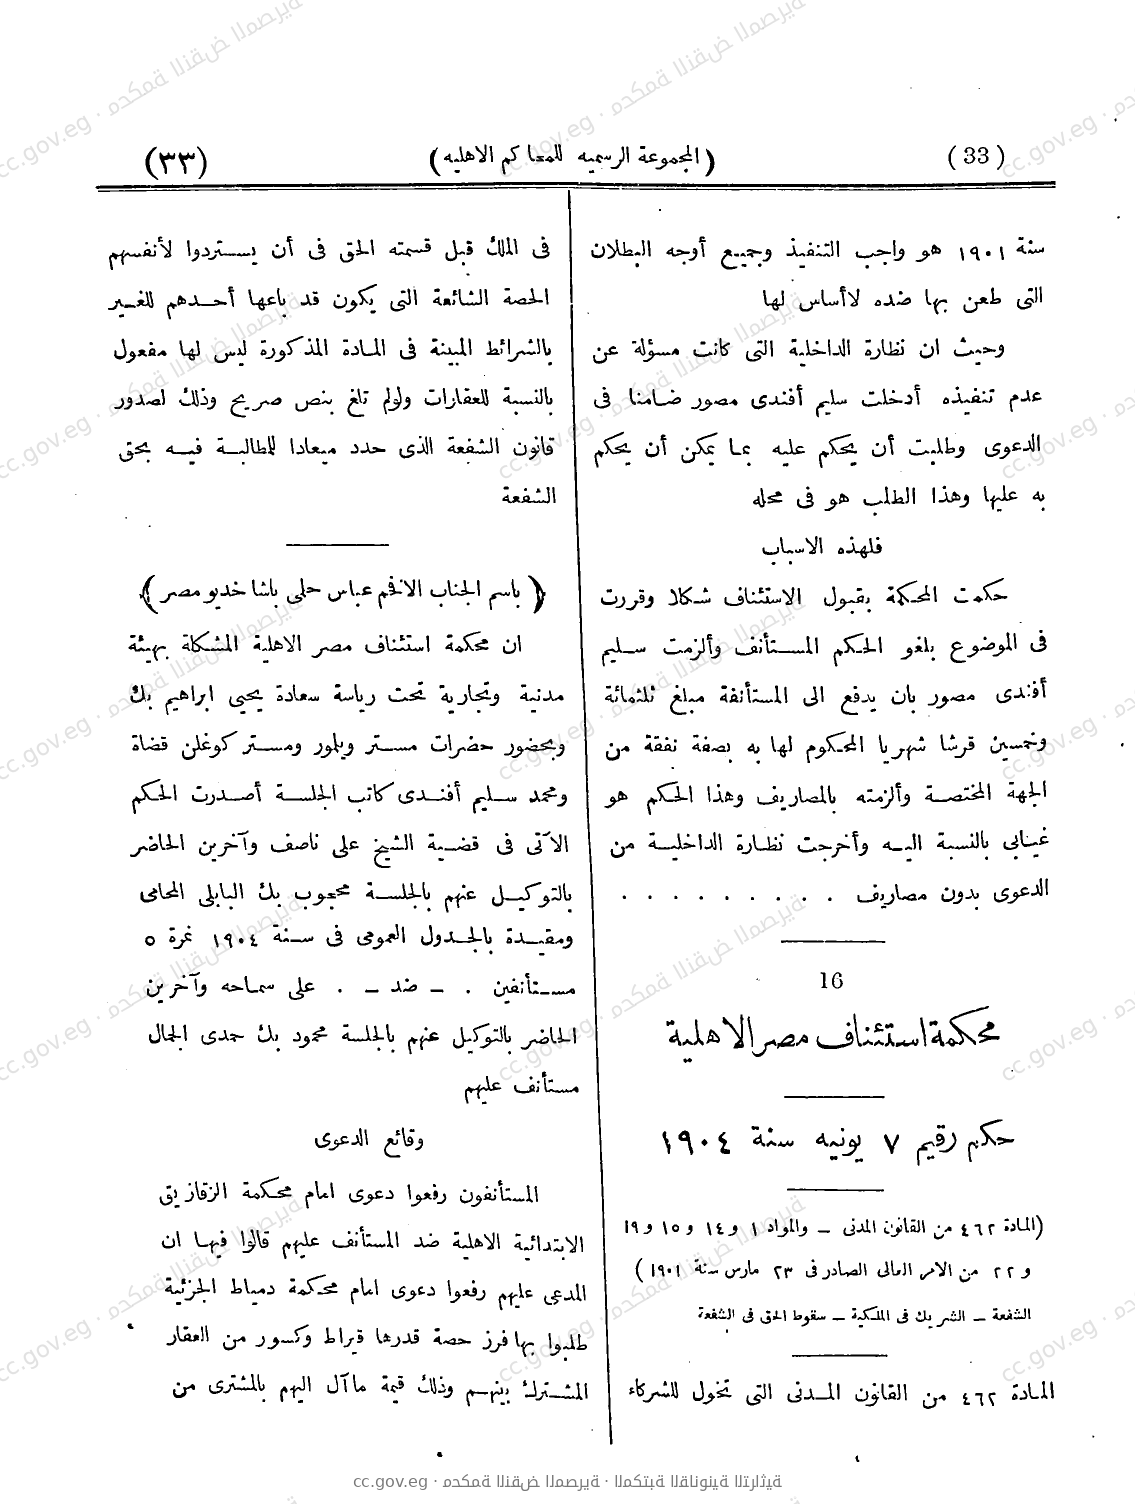 (33)
(المجموعة الرسمية للمحاكم الاهليه)
(٣٣)
سنة ١٩٠١ هو واجب التنفيذ وجميع أوجه البطلان
التى طعن بها ضده لاأساس لها
وحيث ان نظارة الداخلية التى كانت مسؤلة عن
عدم تنفيذه أدخلت سليم أفندى مصور ضامنا فى
الدعوى وطلبت أن يحكم عليه بما يمكن أن يحكم
به عليها وهذا الطلب هو فى محله
فلهذه الاسباب
حكمت المحكمة بقبول الاستئناف شكلا وقررت
فى الموضوع بلغو الحكم المستأنف وألزمت سليم
أفندى مصور بان يدفع الى المستأنفة مبلغ ثلثمائة
وخمسين قرشا شهريا المحكوم لها به بصفة نفقة من
الجهة المختصة وألزمته بالمصاريف وهذا الحكم هو
غيابى بالنسبة اليه وأخرجت نظارة الداخلية من
الدعوى بدون مصاريف . . . . . . . . .
16
محكمة استئناف مصر الاهلية
حكم رقيم ٧ يونيه سنة ١٩٠٤
(المادة ٤٦٢ من القانون المدنى – والمواد ١ و ١٤ و ١٥ و ١٩
و ٢٢ من الامر العالى الصادر فى ٢٣ مارس سنة ١٩٠١)
الشفعة – الشريك فى الملكية – سقوط الحق فى الشفعة
المادة ٤٦٢ من القانون المدنى التى تخول للشركاء
فى الملك قبل قسمته الحق فى أن يستردوا لأنفسهم
الحصة الشائعة التى يكون قد باعها أحدهم للغير
بالشرائط المبينة فى المادة المذكورة ليس لها مفعول
بالنسبة للعقارات ولولم تلغ بنص صريح وذلك لصدور
قانون الشفعة الذى حدد ميعادا للمطالبة فيه بحق
الشفعة
(باسم الجناب الافخم عباس حلمى باشا خديو مصر)
ان محكمة استئناف مصر الاهلية المشكلة بهيئة
مدنية وتجارية تحت رياسة سعادة يحيى ابراهيم بك
وبحضور حضرات مستر ويلمور ومستر كوغلن قضاة
ومحمد سليم أفندى كاتب الجلسة أصدرت الحكم
الآتى فى قضية الشيخ على ناصف وآخرين الحاضر
بالتوكيل عنهم بالجلسة محجوب بك البابلى المحامى
ومقيدة بالجدول العمومى فى سنة ١٩٠٤ نمرة ٥
مستأنفين . – ضد – . على سماحه وآخرين
الحاضر بالتوكيل عنهم بالجلسة محمود بك حمدى الجمال
مستأنف عليهم
وقائع الدعوى
المستأنفون رفعوا دعوى امام محكمة الزقازيق
الابتدائية الاهلية ضد المستأنف عليهم قالوا فيها ان
المدعى عليهم رفعوا دعوى امام محكمة دمياط الجزئية
طلبوا بها فرز حصة قدرها قيراط وكسور من العقار
المشترك بينهم وذلك قيمة ماآل اليهم بالمشترى من
cc.gov.eg · محكمة النقض المصرية · المكتبة القانونية التراثية